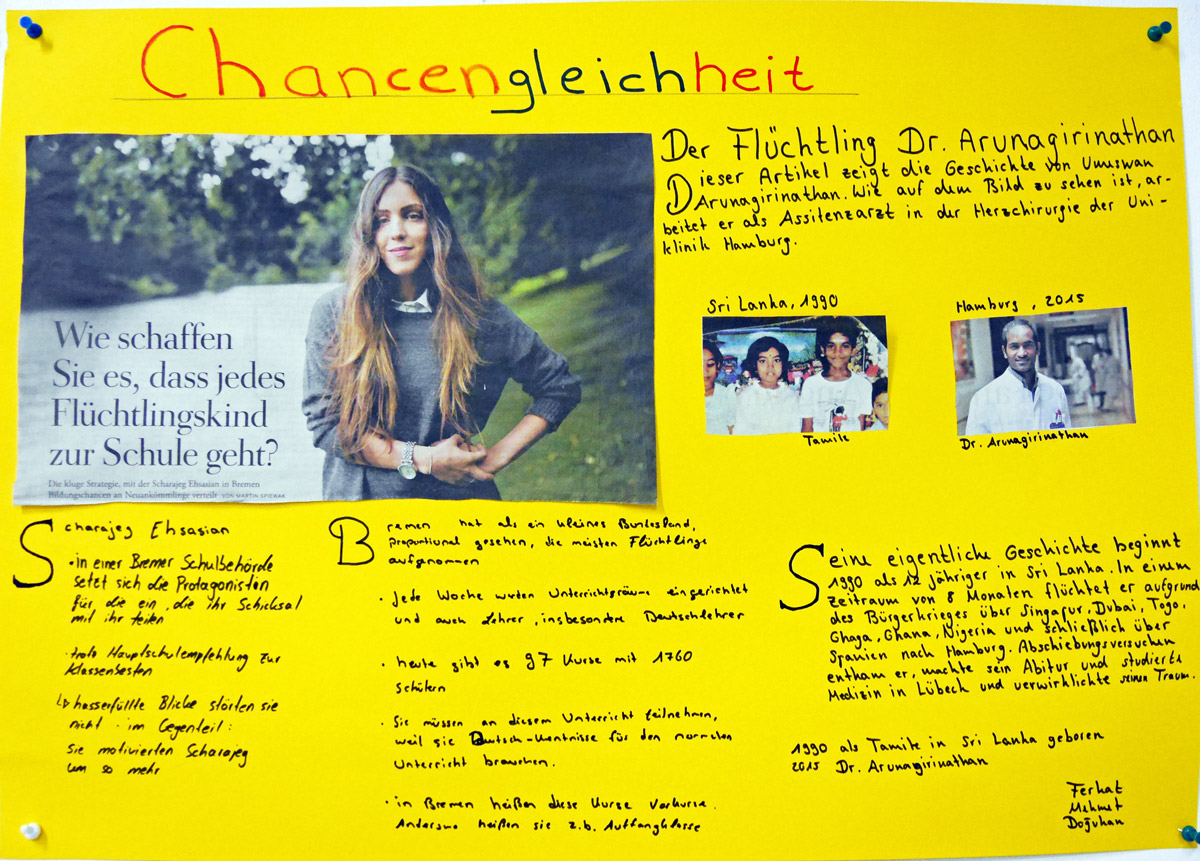 Chancengleichheit
Wie schaffen
Sie es, dass jedes
Flüchtlingskind
zur Schule geht?
Die kluge Strategie, mit der Scharajeg Ehsasian in Bremen
Bildungschancen an Neuankömmlinge verteilt VON MARTIN SPIEWAK
Scharajeg Ehsasian
• in einer Bremer Schulbehörde
setzt sich die Protagonistin
für die ein, die ihr Schicksal
mit ihr teilen
• trotz Hauptschulempfehlung zur
Klassenbesten
↳ hasserfüllte Blicke störten sie
nicht • im Gegenteil:
sie motivierten Scharajeg
um so mehr
Bremen hat als ein kleines Bundesland,
proportional gesehen, die meisten Flüchtlinge
aufgenommen
• Jede Woche wurden Unterrichtsräume eingerichtet
und auch Lehrer, insbesondere Deutschlehrer
• heute gibt es 97 Kurse mit 1760
Schülern
• Sie müssen an diesem Unterricht teilnehmen,
weil sie Deutsch-kenntnisse für den normalen
Unterricht brauchen.
• in Bremen heißen diese Kurse Vorkurse.
Anderswo heißen sie z.b. Auffangklasse
Der Flüchtling Dr. Arunagirinathan
Dieser Artikel zeigt die Geschichte von Umuswan
Arunagirinathan. Wie auf dem Bild zu sehen ist, ar-
beitet er als Assitenzarzt in der Herzchirurgie der Uni-
klinik Hamburg.
Sri Lanka, 1990
Tamile
Hamburg, 2015
Dr. Arunagirinathan
Seine eigentliche Geschichte beginnt
1990 als 12 jähriger in Sri Lanka. In einem
Zeitraum von 8 Monaten flüchtet er aufgrund
des Bürgerkrieges über Singapur, Dubai, Togo,
Ghaga, Ghana, Nigeria und schließlich über
Spanien nach Hamburg. Abschiebungsversuchen
entkam er, machte sein Abitur und studierte
Medizin in Lübeck und verwirklichte seinen Traum.
1990 als Tamile in Sri Lanka geboren
2015 Dr. Arunagirinathan
Ferhat
Mehmet
Doğuhan